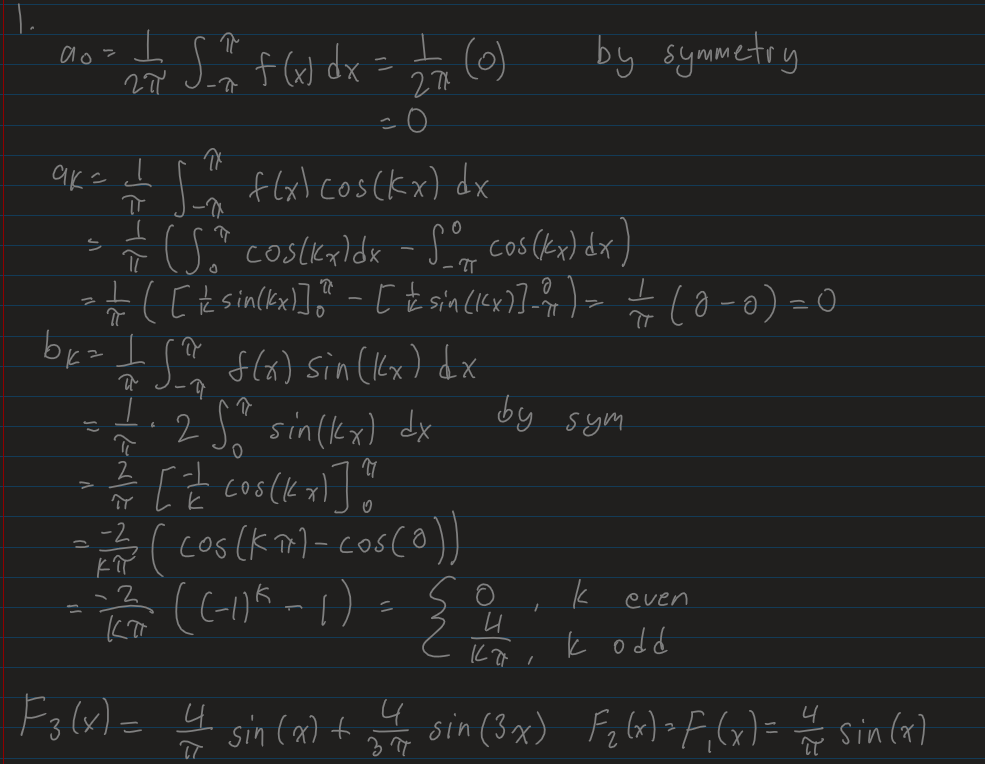 1.
a₀ = 1/2π ∫_{-π}^{π} f(x) dx = 1/2π (0) by symmetry
= 0
a_k = 1/π ∫_{-π}^{π} f(x) cos(kx) dx
= 1/π (∫_0^π cos(kx)dx − ∫_{-π}^0 cos(kx)dx)
= 1/π ([1/k sin(kx)]_0^π − [1/k sin(kx)]_{-π}^0) = 1/π (0 − 0) = 0
b_k = 1/π ∫_{-π}^{π} f(x) sin(kx) dx
= 1/π · 2 ∫_0^π sin(kx) dx by sym
= 2/π [-1/k cos(kx)]_0^π
= -2/kπ (cos(kπ) − cos(0))
= -2/kπ ((-1)^k − 1) = { 0, k even
4/kπ, k odd
F₃(x) = 4/π sin(x) + 4/3π sin(3x) F₂(x) = F₁(x) = 4/π sin(x)